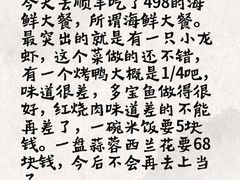 今天去顺丰吃了498的海
鲜大餐，所谓海鲜大餐。
最突出的就是有一只小龙
虾，这个菜做的还不错，
有一个烤鸭大概是1/4吧，
味道很差，多宝鱼做得很
好，红烧肉味道差的不能
再差了，一碗米饭要5块
钱。一盘蒜蓉西兰花要68
块钱，今后不会再去上当
了